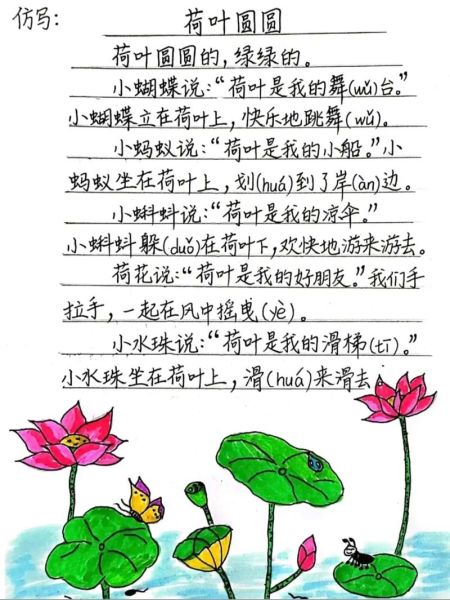 仿写:
荷叶圆圆
荷叶圆圆的,绿绿的。
小蝴蝶说:“荷叶是我的舞(wǔ)台。”
小蝴蝶立在荷叶上,快乐地跳舞(wǔ)。
小蚂蚁说:“荷叶是我的小船。”小
蚂蚁坐在荷叶上,划(huá)到了岸(àn)边。
小蝌蚪说:“荷叶是我的凉伞。”
小蝌蚪躲(duǒ)在荷叶下,欢快地游来游去。
荷花说:“荷叶是我的好朋友。”我们手
拉手,一起在风中摇曳(yè)。
小水珠说:“荷叶是我的滑梯(tī)。”
小水珠坐在荷叶上,滑(huá)来滑去。